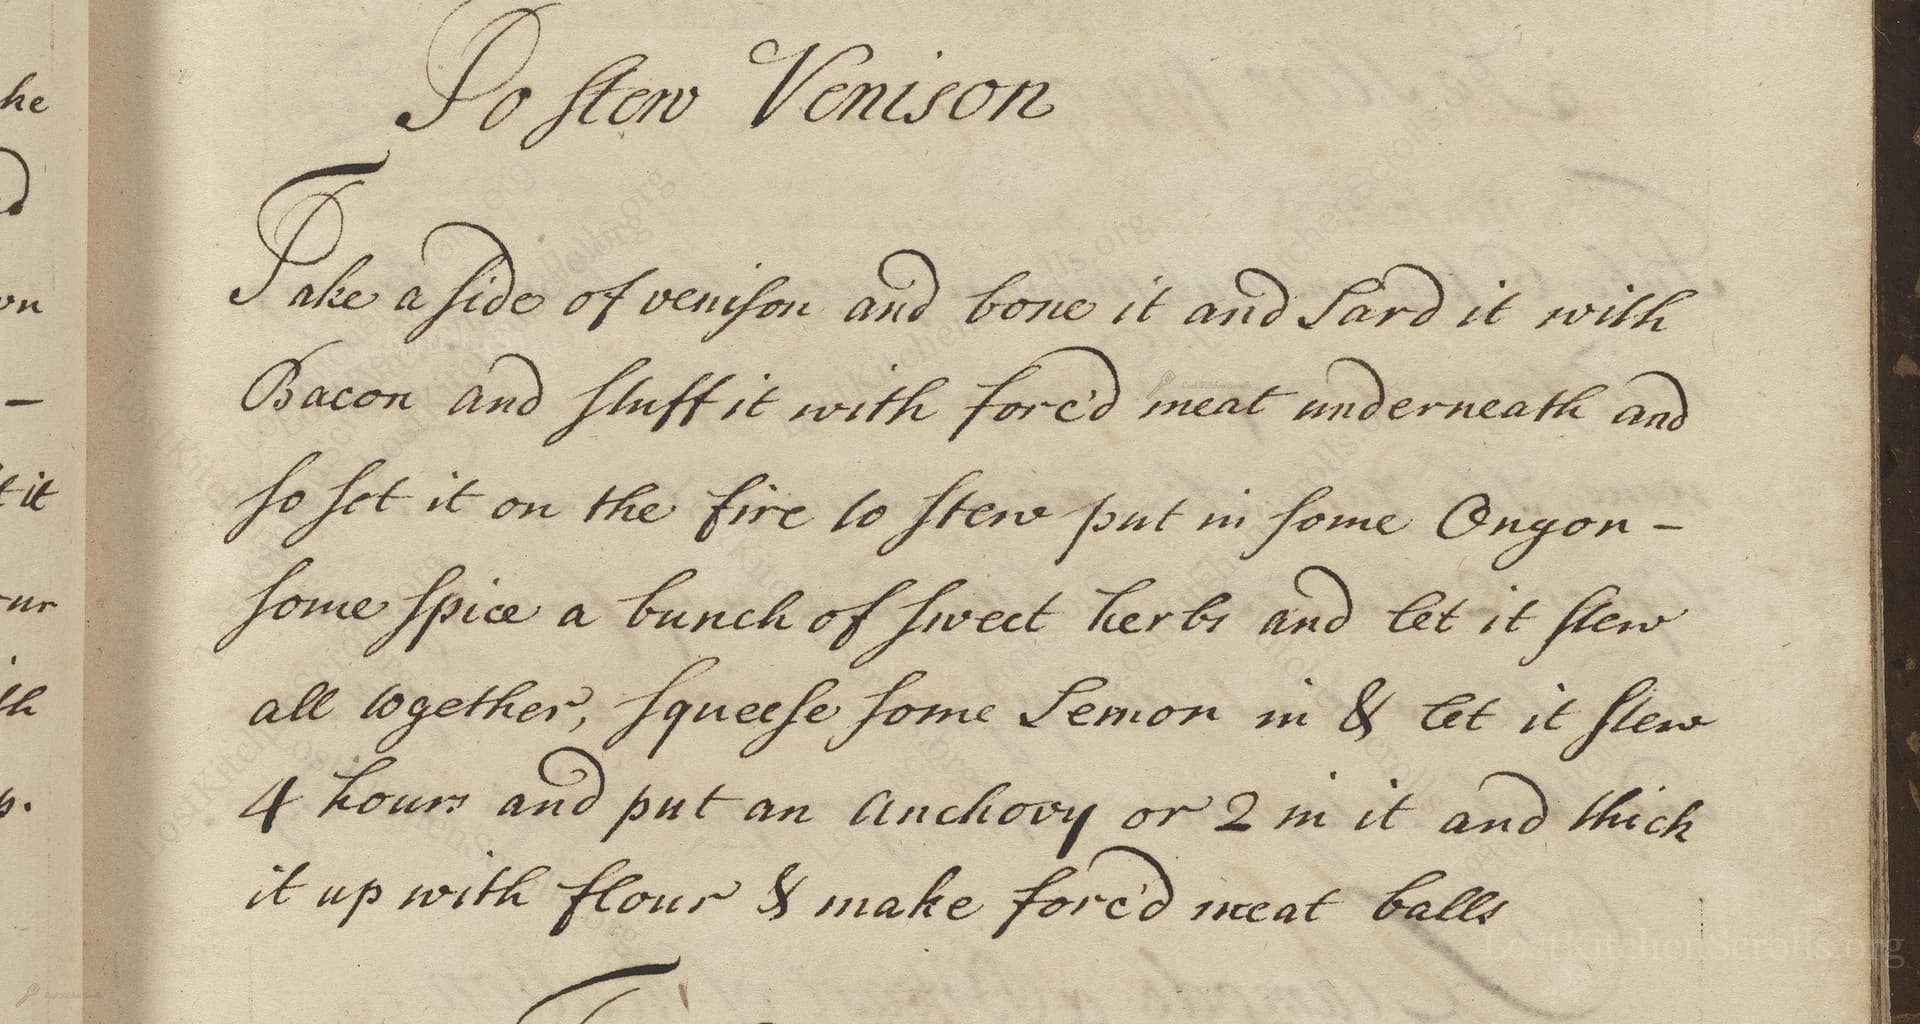 To stew Venison
Take a side of venison and bone it and Lard it with
Bacon and stuff it with forc'd meat underneath and
so set it on the fire to stew put in some Onyon -
some spice a bunch of sweet herbs and let it stew
all together, squeese some Lemon in & let it stew
4 hours and put an anchovy or 2 in it and thick
it up with flour & make forc'd meat balls
LostKitchenScrolls.org